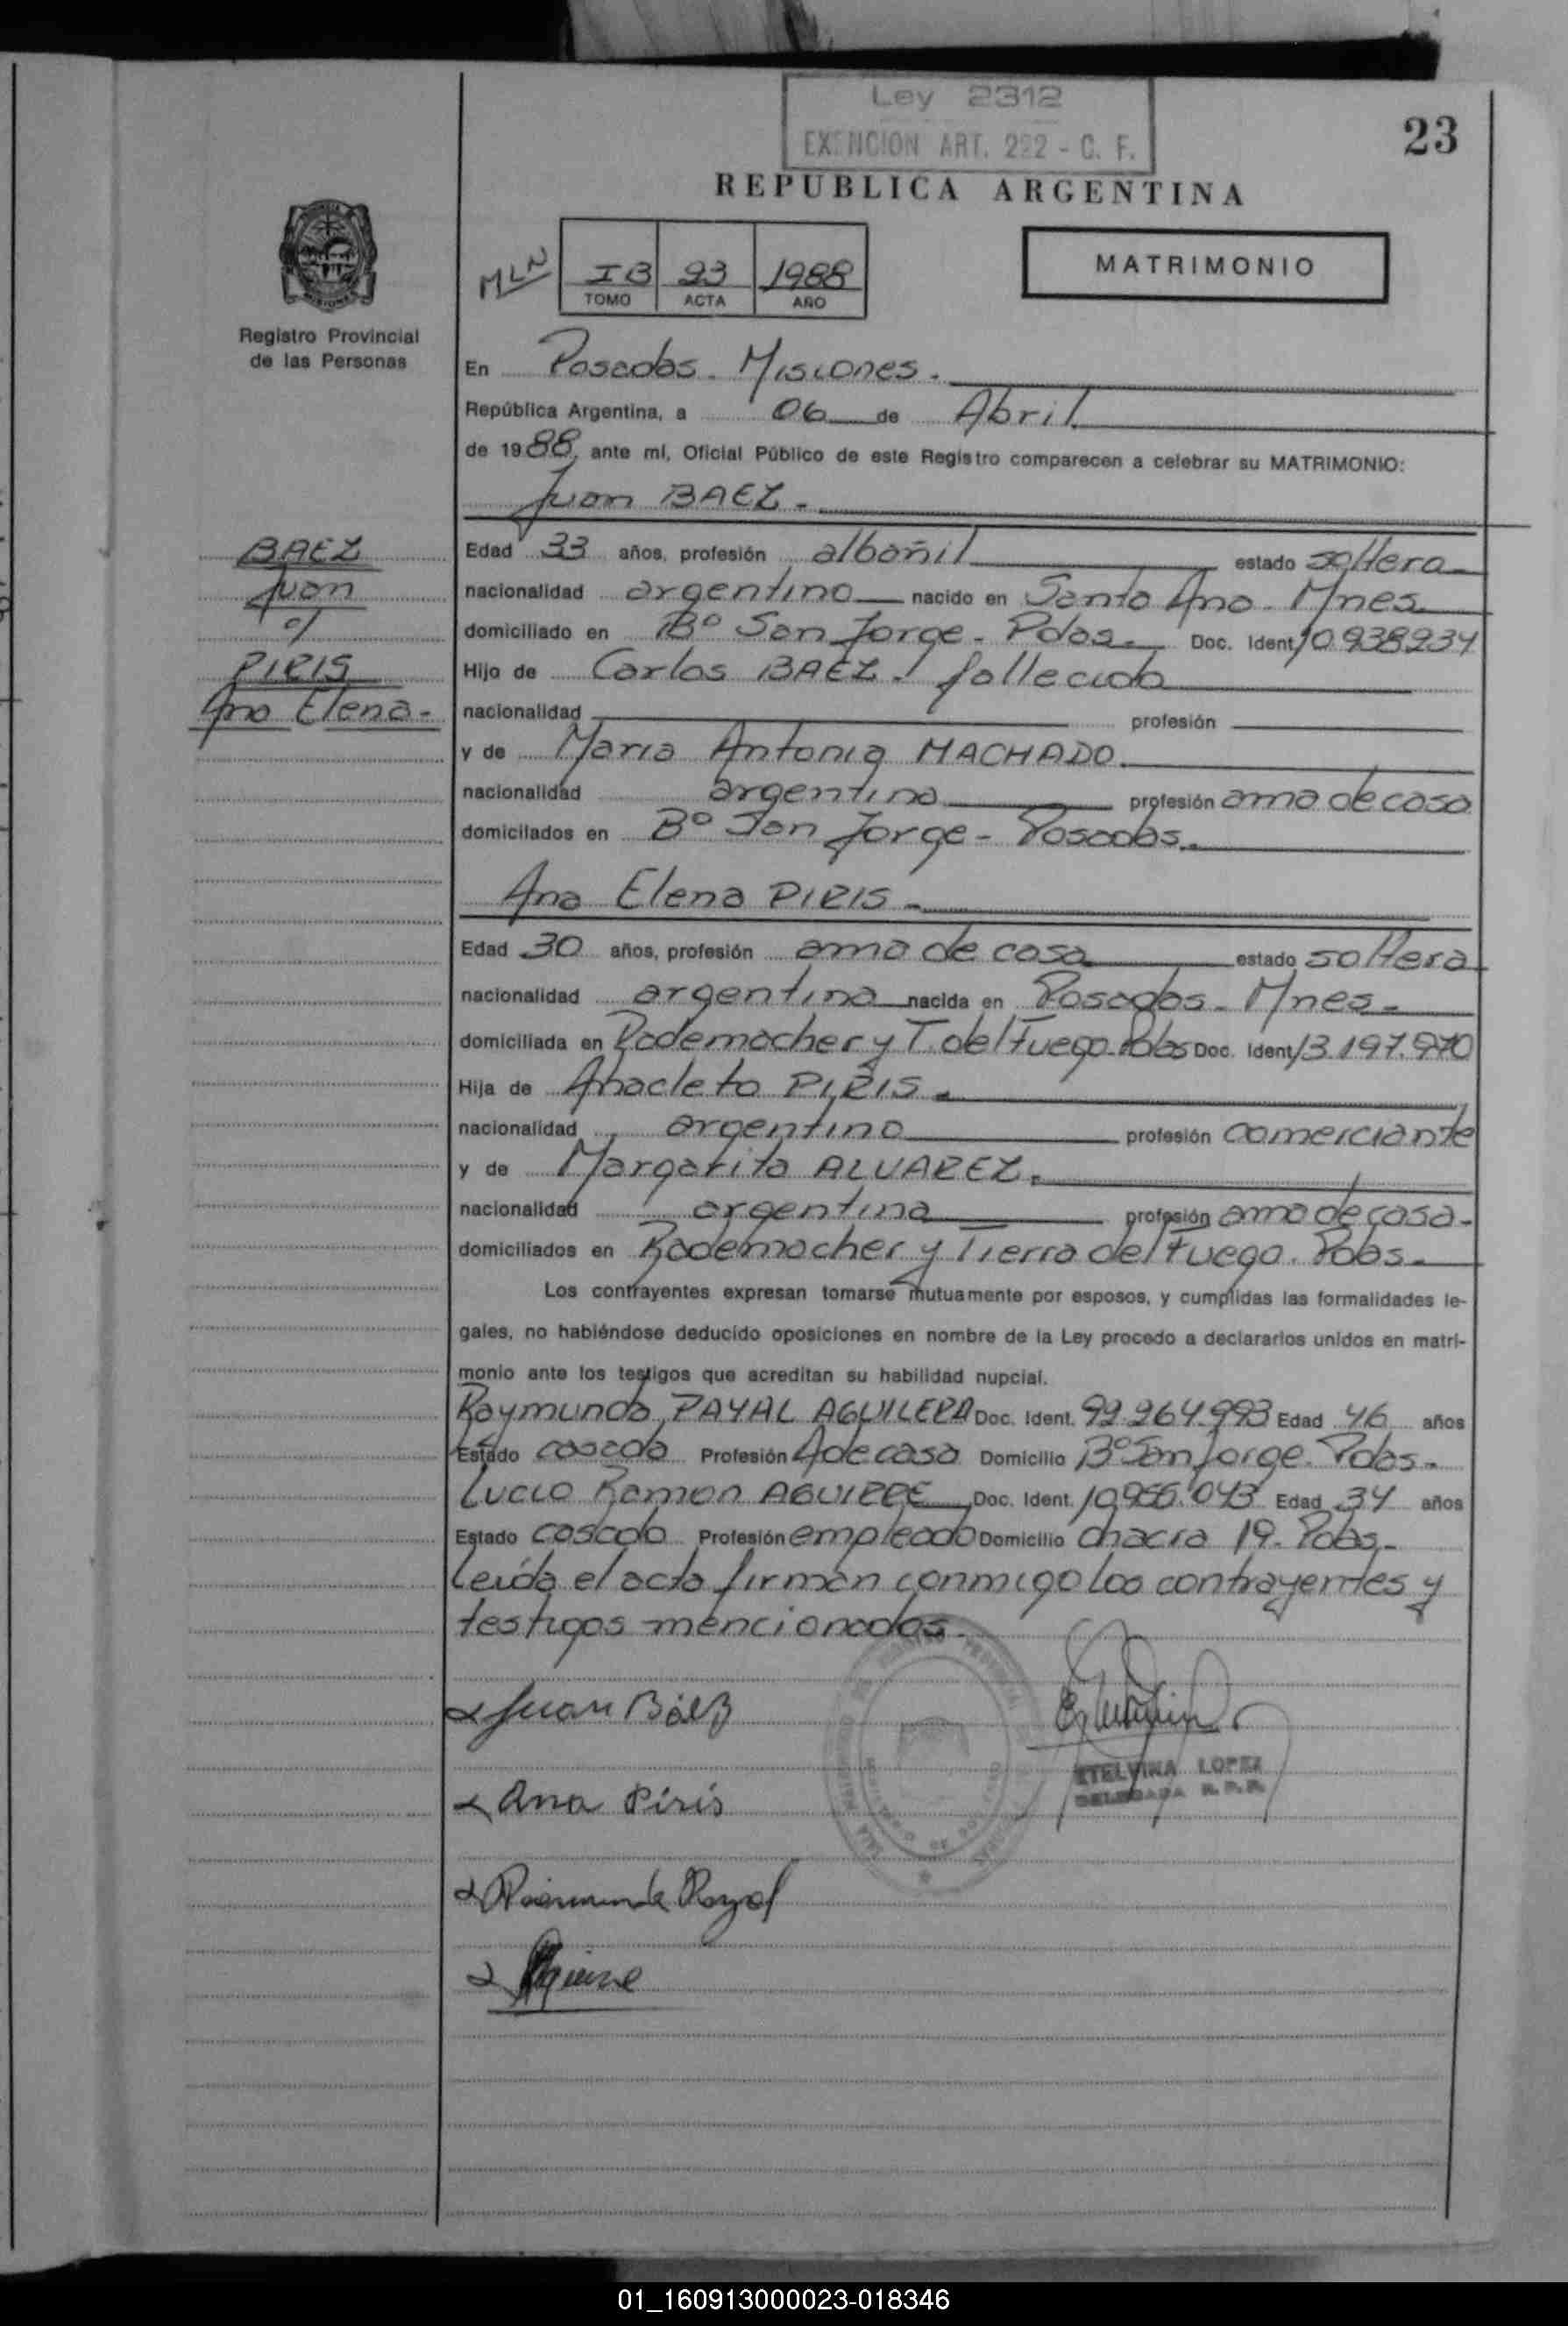 Ley 2312
EXENCION ART. 222 - C. F.
23
REPUBLICA ARGENTINA
Registro Provincial
de las Personas
MLN
IB 93 1988
TOMO ACTA AÑO
MATRIMONIO
En Posadas. Misiones.
República Argentina, a 06 de Abril
de 1988, ante mí, Oficial Público de este Registro comparecen a celebrar su MATRIMONIO:
Juan BAEZ.
BAEZ
Juan
c/
PIRIS
Ana Elena.
Edad 33 años, profesión albañil estado soltero
nacionalidad argentino nacido en Santa Ana. Mnes.
domiciliado en B° San Jorge. Pdas. Doc. Ident. 10.938.934
Hijo de Carlos BAEZ. fallecido
nacionalidad profesión
y de Maria Antonia MACHADO.
nacionalidad argentina profesión ama de casa
domicilados en B° San Jorge - Posadas.
Ana Elena PIRIS.
Edad 30 años, profesión ama de casa estado soltera
nacionalidad argentina nacida en Posadas. Mnes.
domiciliada en Rademacher y T. del Fuego. Pdas Doc. Ident. 13.197.970
Hija de Anacleto PIRIS.
nacionalidad argentino profesión comerciante
y de Margarita ALVAREZ.
nacionalidad argentina profesión ama de casa.
domiciliados en Rademacher y Tierra del Fuego. Pdas.
Los contrayentes expresan tomarse mutuamente por esposos, y cumplidas las formalidades le-
gales, no habiéndose deducido oposiciones en nombre de la Ley procedo a declararlos unidos en matri-
monio ante los testigos que acreditan su habilidad nupcial.
Raymunda PAYAL AGUILERA Doc. Ident. 92.264.993 Edad 46 años
Estado casada Profesión A de casa Domicilio B° San Jorge. Pdas.
Lucio Ramon AGUIRRE Doc. Ident. 10.966.043 Edad 34 años
Estado casado Profesión empleado Domicilio chacra 19. Pdas.
Leída el acta firman conmigo los contrayentes y
testigos mencionados.
Juan Báez
ETELVINA LOPEZ
DELEGADA R. P. P.
Ana Piris
Aguirre
01_160913000023-018346